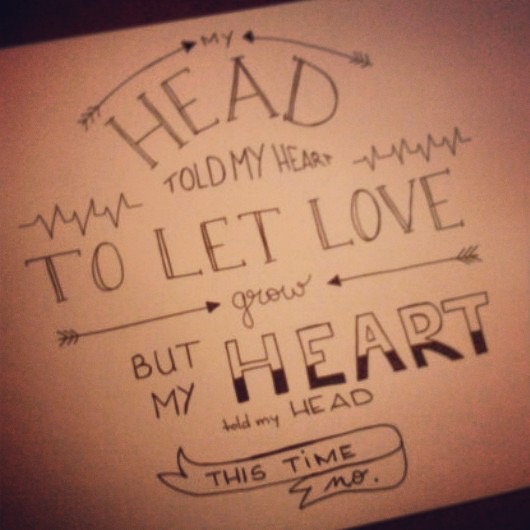 MY
HEAD
TOLD MY HEART
TO LET LOVE
grow
BUT
MY HEART
told my HEAD
THIS TIME
no.